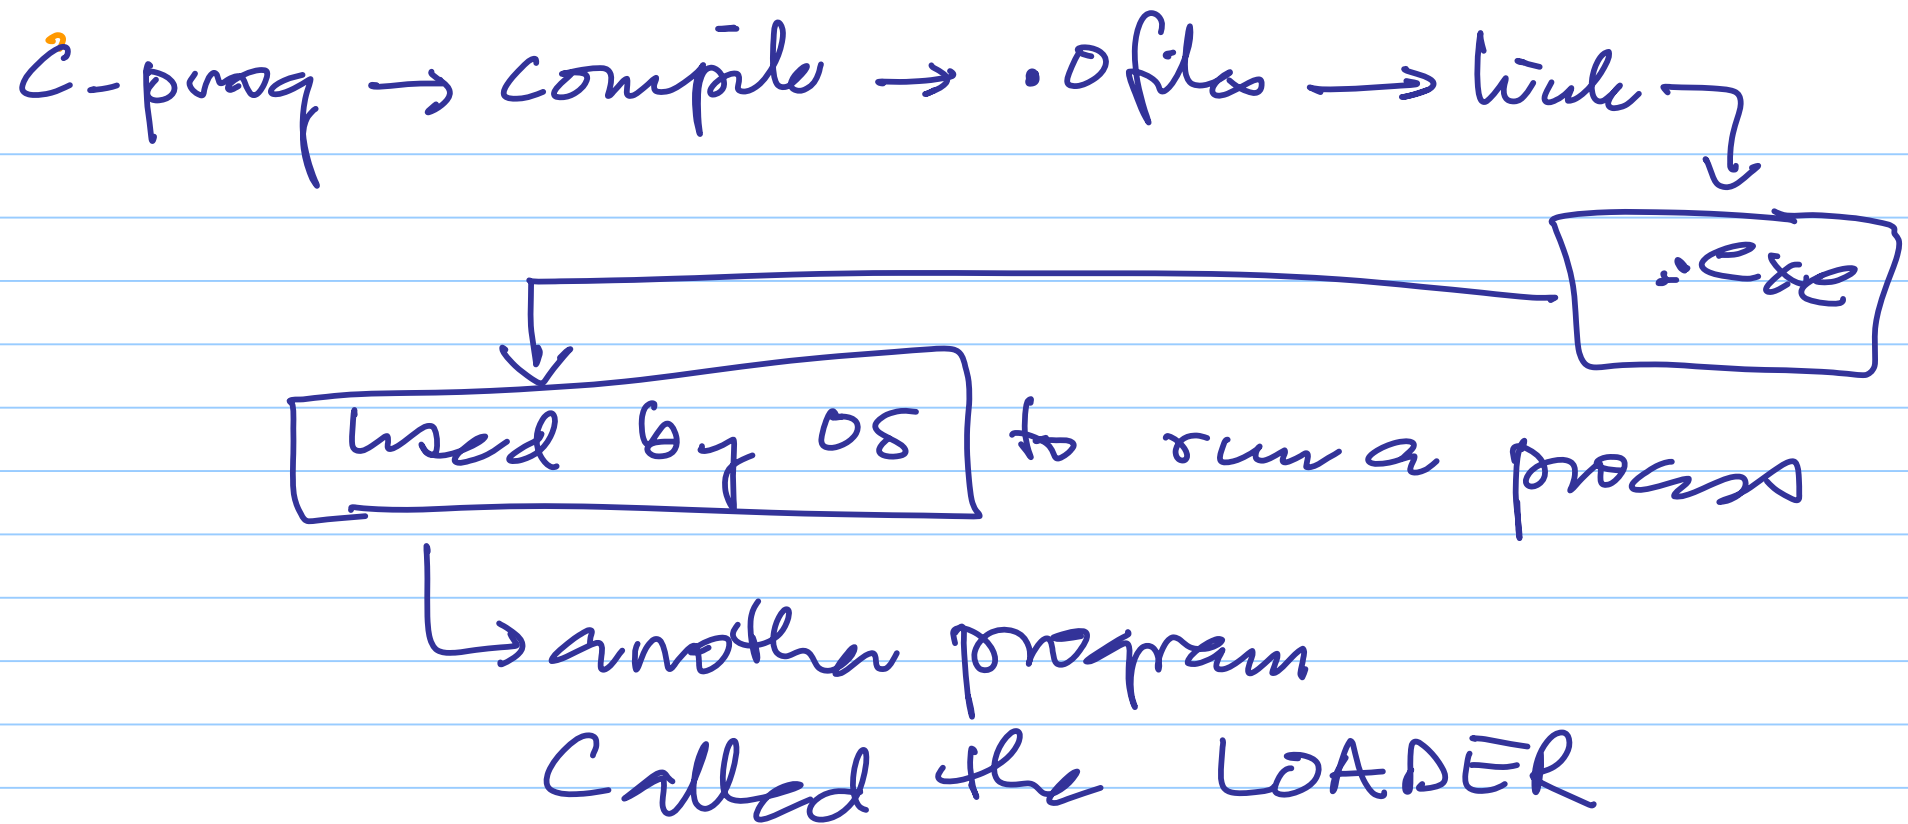 C-prog → compile → .o files → link
.exe
Used by OS to run a process
another program
Called the LOADER